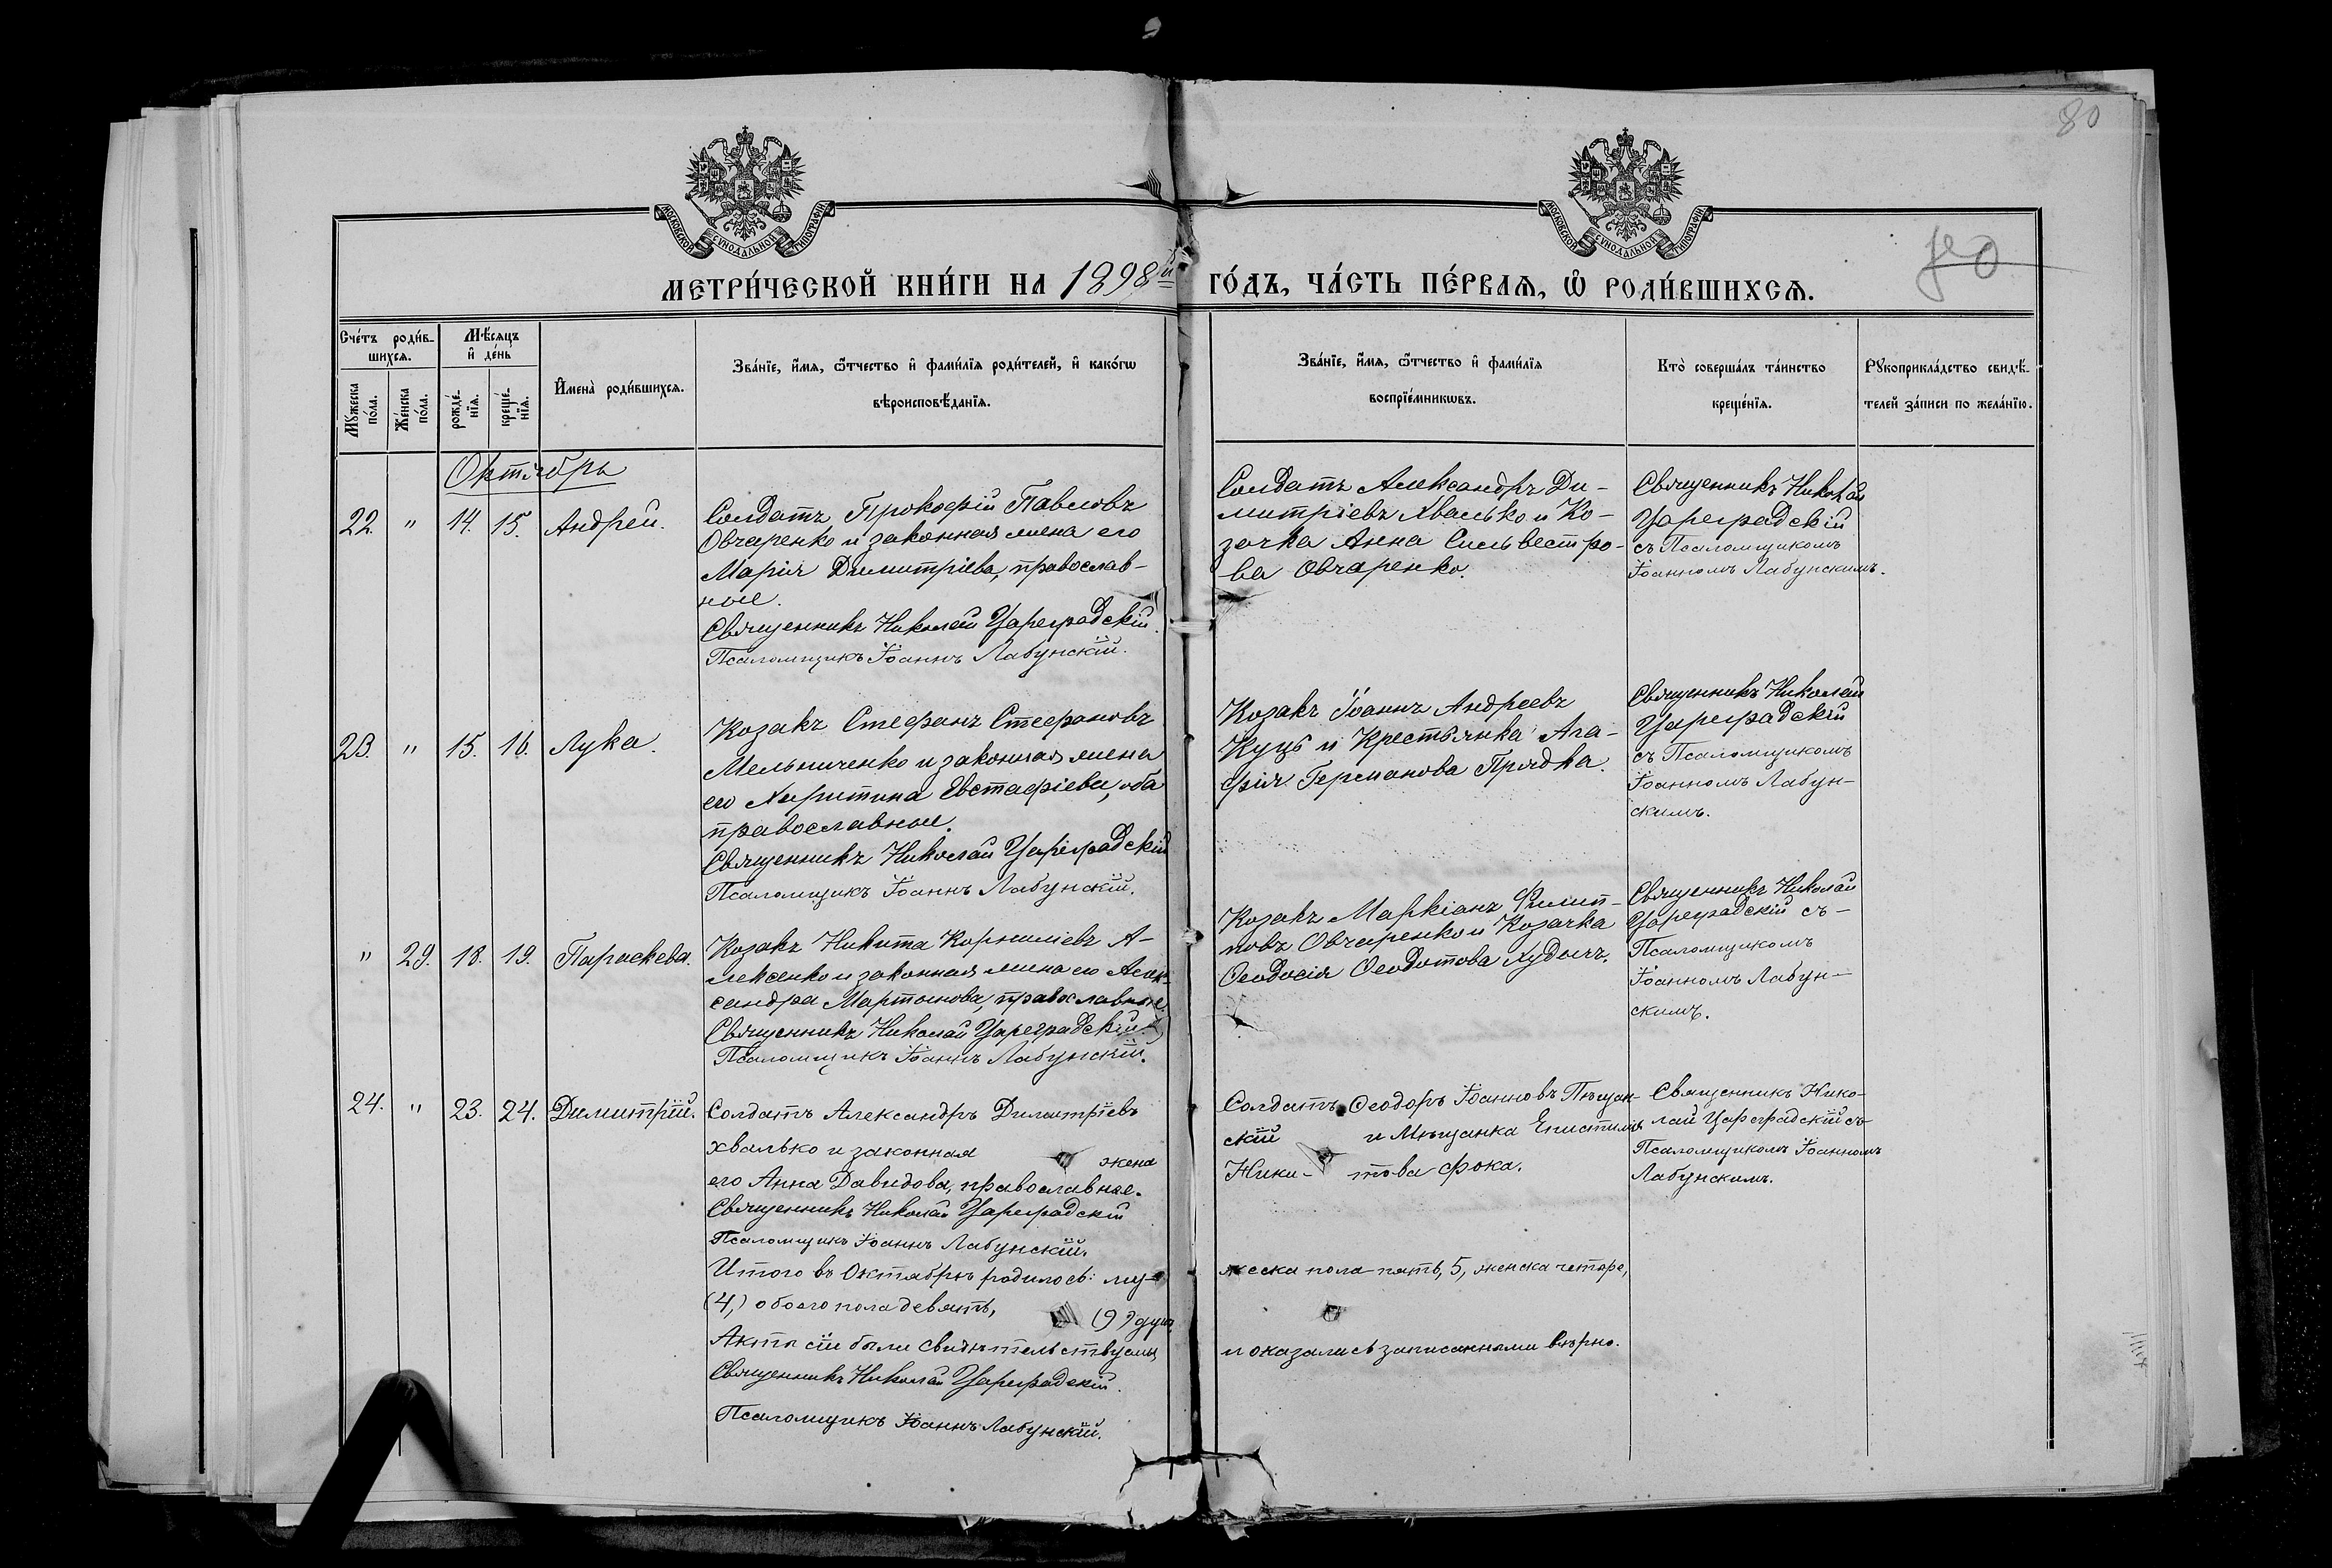 80
МОСКОВСКОЙ СѴНОДАЛЬНОЙ ТИПОГРАФІИ
МОСКОВСКОЙ СѴНОДАЛЬНОЙ ТИПОГРАФІИ
МЕТРИ́ЧЕСКОЙ КНИ́ГИ НА 1898й ГО́ДЪ, ЧА́СТЬ ПЕ́РВАѦ, Ѡ҆ РОДИ́ВШИХСѦ.
Сче́тъ роди́в-
шихсѧ.
Мѹ́жеска
по́ла.
Же́нска
по́ла.
Мѣ́сѧцъ
и҆ де́нь
рожде́-
нїѧ.
креще́-
нїѧ.
И҆мена̀ роди́вшихсѧ.
Зва́нїе, и҆́мѧ, ѻ҆́тчество и҆ фами́лїѧ роди́телей, и҆ како́гѡ
вѣроисповѣ́данїѧ.
Зва́нїе, и҆́мѧ, ѻ҆́тчество и҆ фами́лїѧ
воспрїе́мникѡвъ.
Кто̀ соверша́лъ та́инство
креще́нїѧ.
Рѹкоприкла́дство свидѣ́-
телей за́писи по жела́нїю.
Октябрь
22. " 14. 15. Андрей.
Солдатъ Прокофій Павловъ
Овчаренко и законная жена его
Марія Димитріева, православ-
ные.
Священникъ Николай Цареградскій.
Псаломщикъ Іоаннъ Лабунскій.
Солдатъ Александръ Ди-
митріевъ Хвалько и Ко-
зачка Анна Сильвестро-
ва Овчаренко.
Священникъ Николай
Цареградскій
съ Псаломщикомъ
Іоанномъ Лабунскимъ.
23. " 15. 16. Лука.
Козакъ Стефанъ Стефановъ
Мельниченко и законная жена
его Харитина Евстафіева, оба
православные.
Священникъ Николай Цареградскій
Псаломщикъ Іоаннъ Лабунскій.
Козакъ Іоаннъ Андреевъ
Куць и Крестьянка Ага-
фія Германова Прядка.
Священникъ Николай
Цареградскій
съ Псаломщикомъ
Іоанномъ Лабун-
скимъ.
" 29. 18. 19. Параскева.
Козакъ Никита Корниліевъ А-
лексенко и законная жена его Алек-
сандра Мартынова, православные.
Священникъ Николай Цареградскій.
Псаломщикъ Іоаннъ Лабунскій.
Козакъ Маркіанъ Филип-
повъ Овчаренко и Козачка
Ѳеодосія Ѳеодотова Худолѣ.
Священникъ Николай
Цареградскій съ-
Псаломщикомъ
Іоанномъ Лабун-
скимъ.
24. " 23. 24. Димитрій.
Солдатъ Александръ Димитріевъ
хвалько и законная жена
его Анна Давидова, православные.
Священникъ Николай Цареградскій
Псаломщикъ Іоаннъ Лабунскій.
Солдатъ Ѳеодоръ Іоанновъ Пѣщан-
скій и Мѣщанка Епистимія
Ники- това фока.
Священникъ Нико-
лай Цареградскій съ
Псаломщикомъ Іоанномъ
Лабунскимъ.
Итого въ Октябрѣ родилось: му-жеска пола пять, 5, женска четыре,
(4,) обоего пола девять, (9) душъ.
Акты сіи были свидѣтельствуемы и оказались записанными вѣрно.
Священникъ Николай Цареградскій.
Псаломщикъ Іоаннъ Лабунскій.